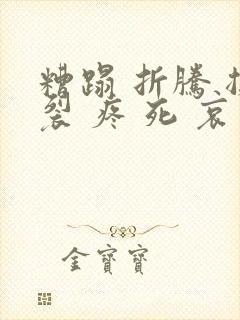 糟蹋 折騰
裂 疼 死 哀
金寶寶